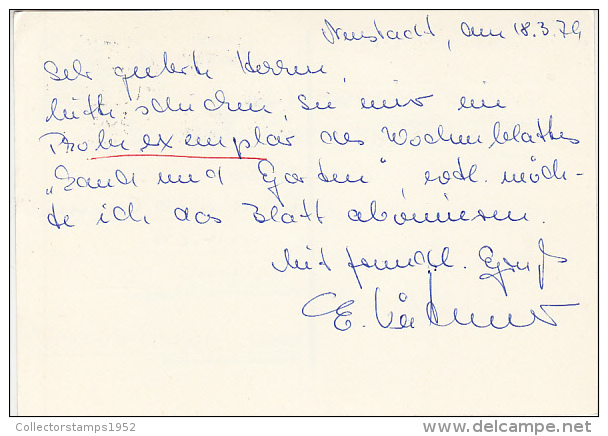 Neustadt, am 18.3.79
Sehr geehrte Herren,
bitte schicken Sie mir ein
Probeexemplar des Wochenblattes
"Land und Garten", evtl. möch-
te ich das Blatt abonnieren.
Mit freundl. Gruß
E.
Collectorstamps1952
delcampe.net